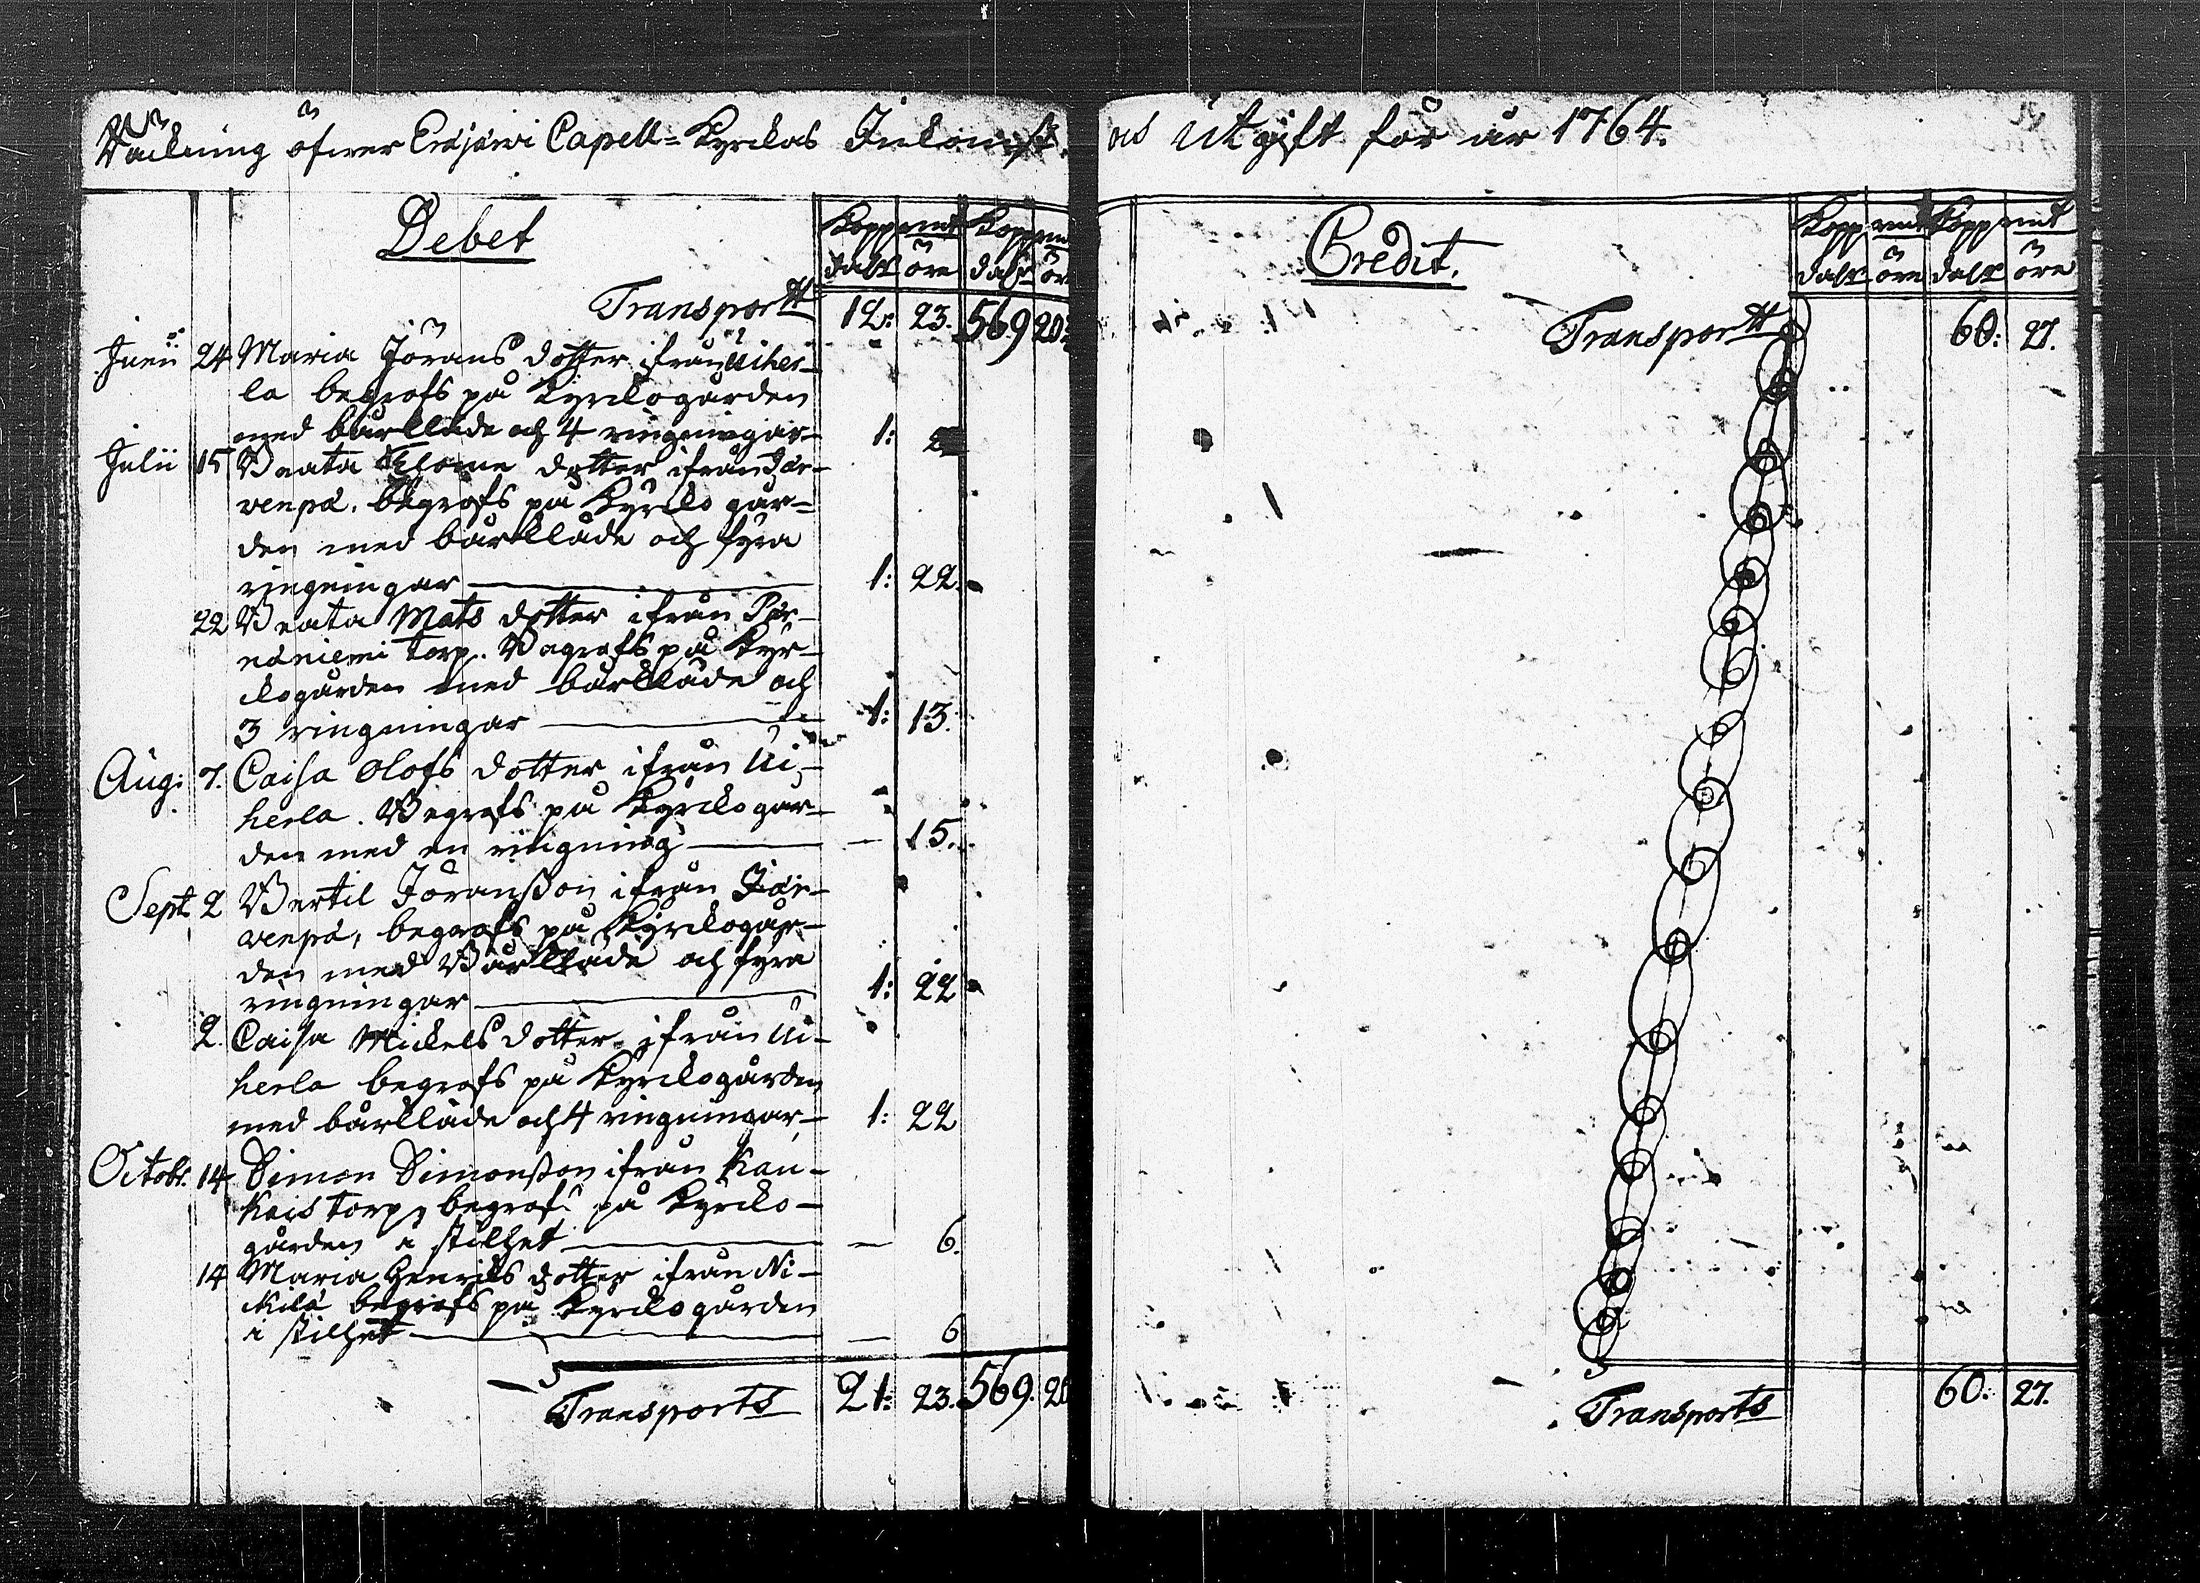 Räckning öfwer Eräjärwi Capell=Kyrckas Inkomst
och Utgift för år 1764.
Debet
Kopp: rmt Kopp: rmt
dalr öre dalr öre
Transportt 12: 23. 569 20
Junii 24 Maria Jörans dotter ifrån Uiher-
la begrofs på Kyrckogården
med bårkläde och 4 ringningar- 1: 22
Julii 15 Beata dotter ifrån Jär-
venpä. begrofs på Kyrcko går=
den med bårkläde och fyra
ringningar 1: 22.
22 Beata Mats dotter ifrån Pär-
näniemi torp. Begrofs på Kyr-
ckogården med bårkläde och
3 ringningar 1: 13.
Aug: 7. Caisa Olofs dotter ifrån Ui-
herla. Begrofs på Kyrckogår-
den med en ringning — 15.
Sept 2 Bertil Jöransson ifrån Jär-
venpä, begrofs på Kyrckogår-
den med Bårkläde och fyra
ringningar 1: 22
2. Caisa Mickels dotter ifrån Ui-
herla begrofs på Kyrckogården
med bårkläde och 4 ringningar- 1: 22
Octobr. 14 Simon Simonsson ifrån Kau-
kais torp, begrofs på Kyrcko-
gården i stilhet — 6.
14 Maria Henrics dotter ifrån Ni-
ckilä begrofs på Kyrckogården
i stilhet — 6
Transports 21: 23. 569. 20
Credit.
Kopp rmt Kopp rmt
dalr öre dalr öre
Transportt 60: 27.
Transports 60: 27.